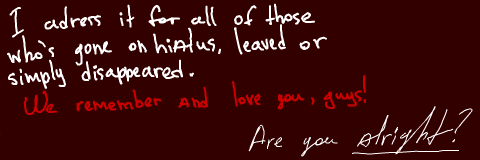 I adress it for all of those
who's gone on hiatus, leaved or
simply disappeared.
We remember and love you, guys!
Are you alright?